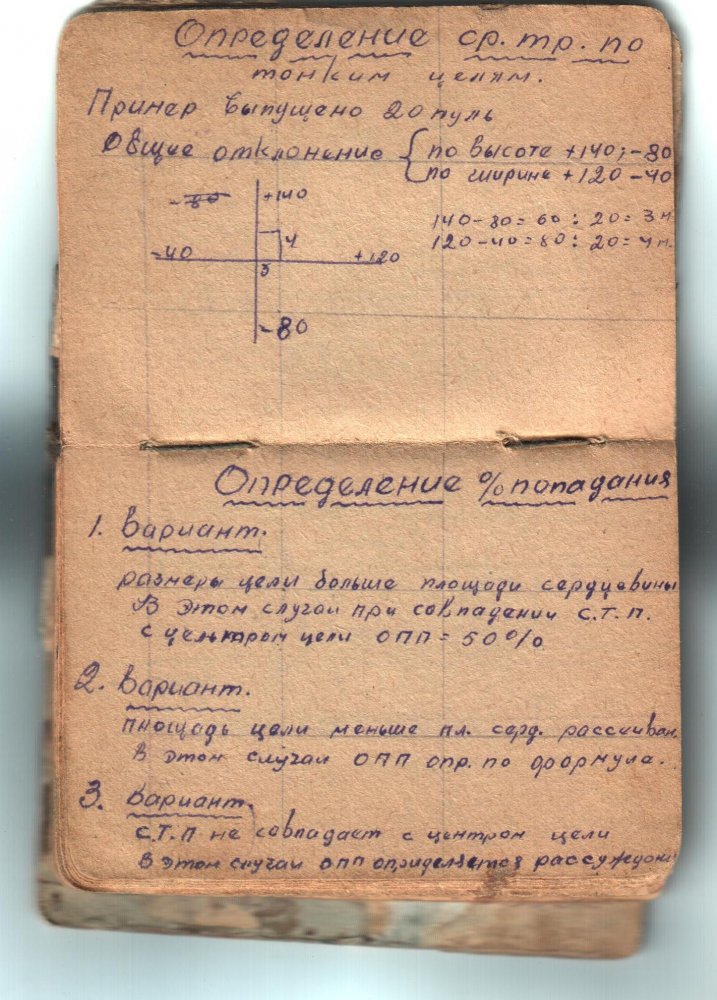 Определение ср. тр. по
тонким целям.
Пример выпущено 20 пуль
Общие отклонение { по высоте +140; -80
по ширине +120 -40
-80
+140
140-80=60:20=3 м
120-40=80:20=4 м.
-40
4
+120
3
-80
Определение % попадания
1. Вариант.
размеры цели больше площади сердцевины
В этом случаи при совпадении С.Т.П.
с центром цели ОПП = 50%
2. Вариант.
площадь цели меньше пл. серд. рассеиван.
В этом случаи ОПП опр. по формула.
3. Вариант.
С.Т.П не совпадает с центром цели
В этом случаи ОПП определяется